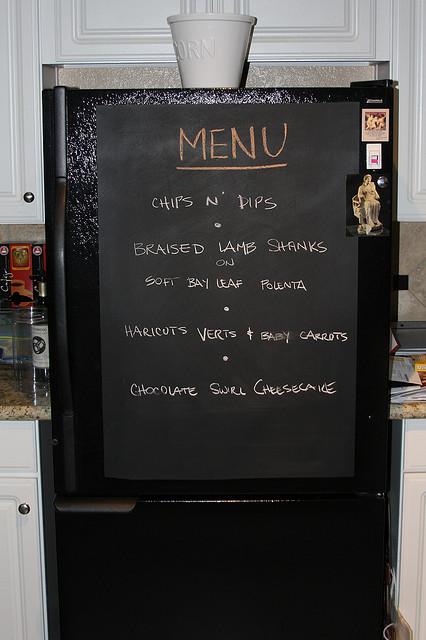 ORN
MENU
CHIPS N' DIPS
BRAISED LAMB SHANKS
ON
SOFT BAY LEAF POLENTA
HARICOTS VERTS & BABY CARROTS
CHOCOLATE SWIRL CHEESECAKE